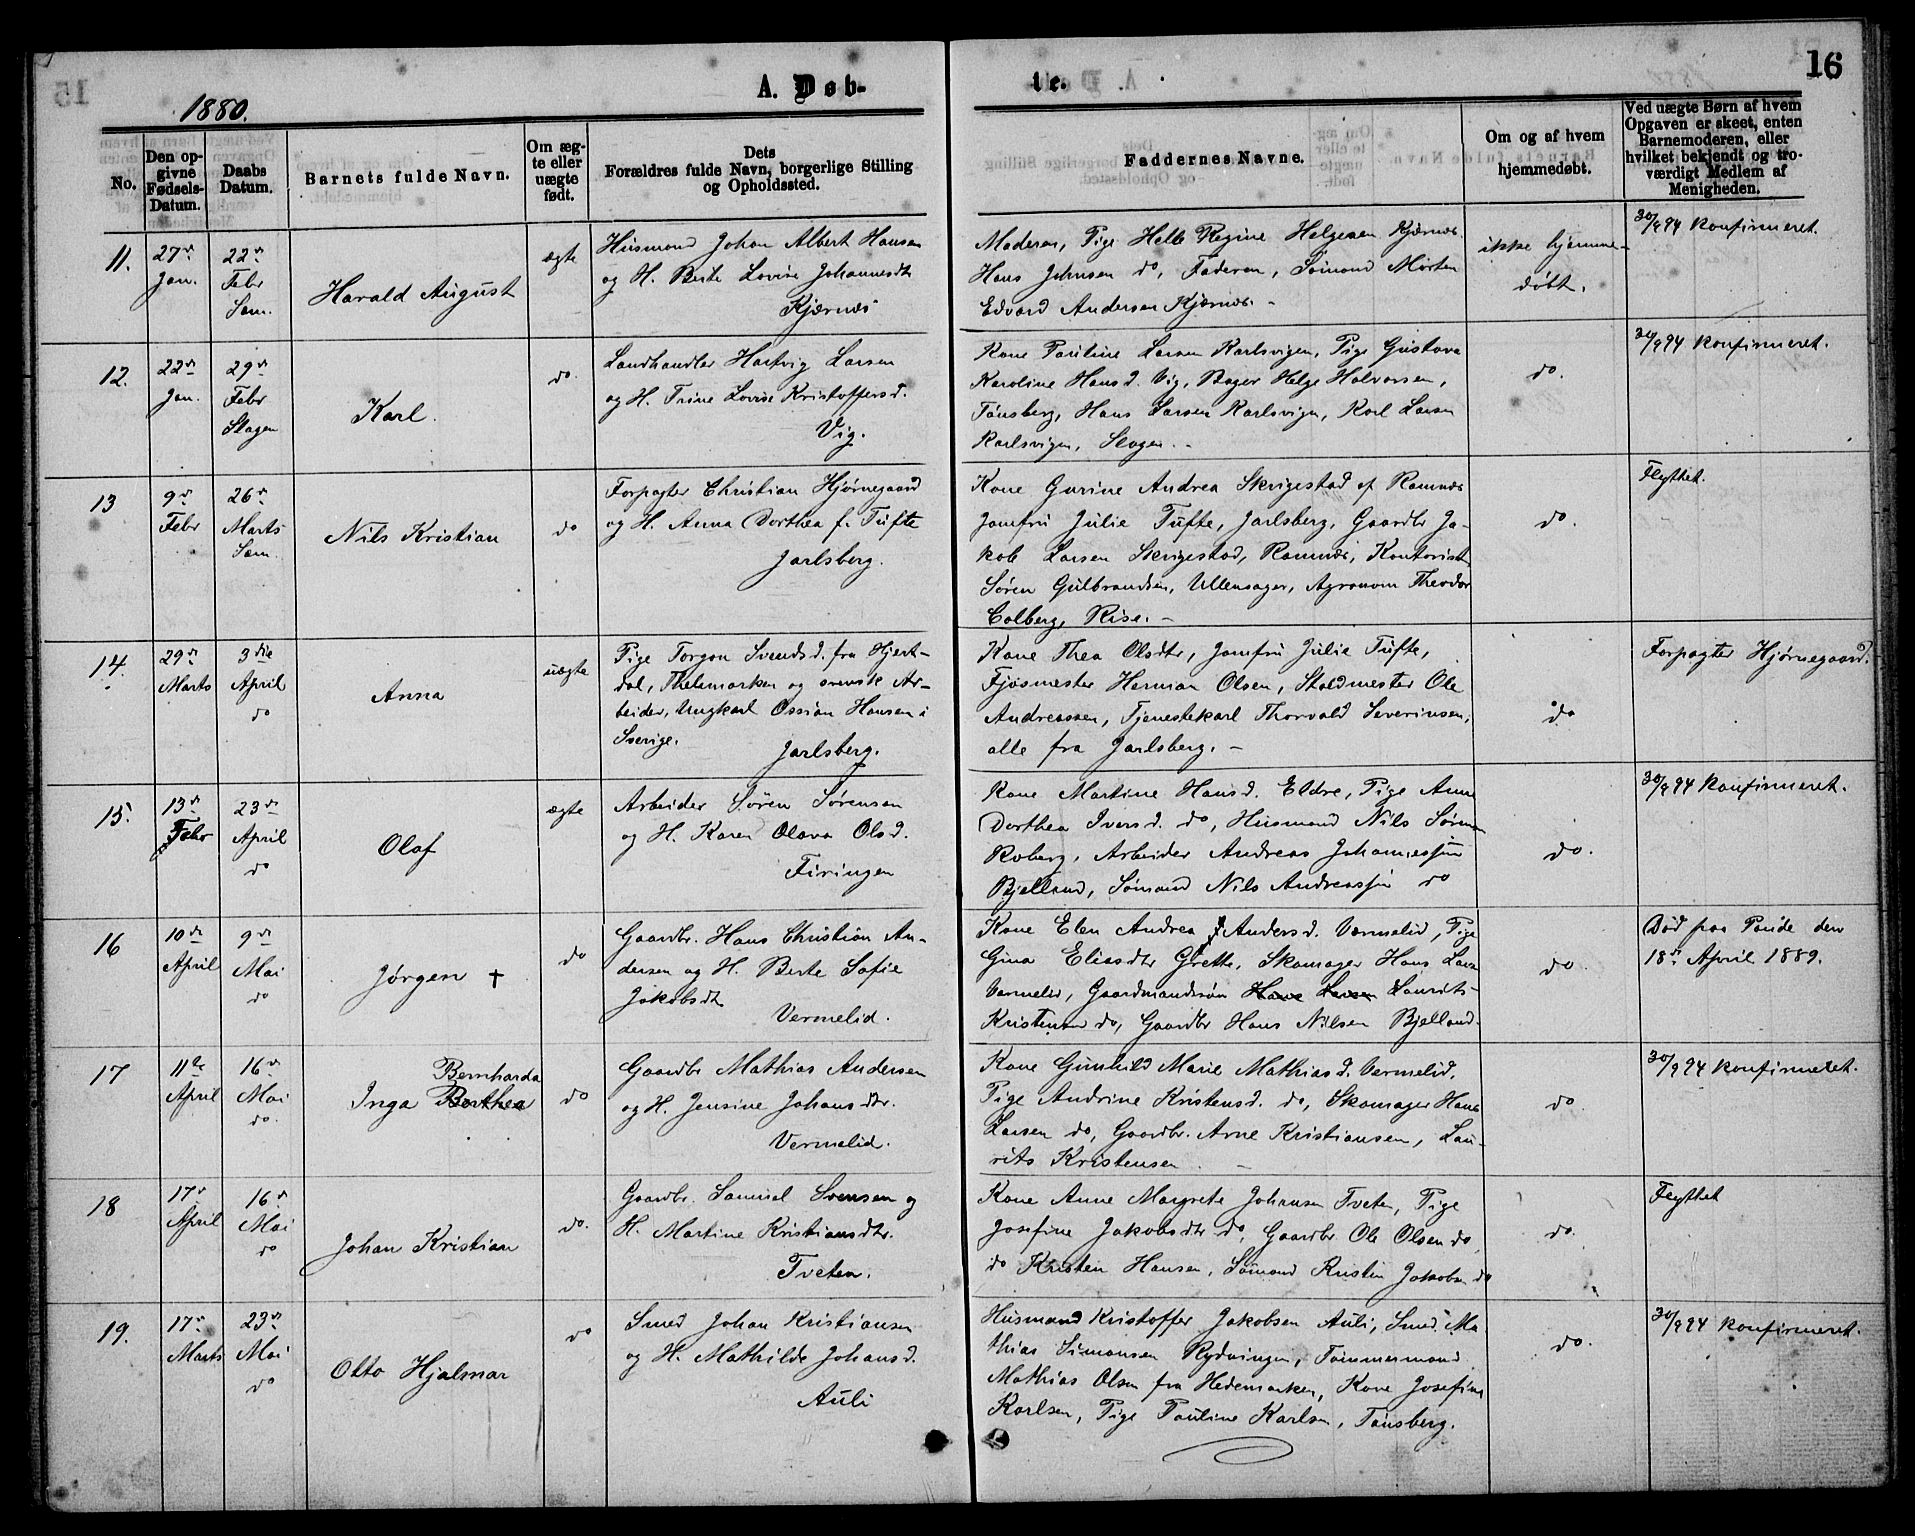 16
1880.
A. Døb-
te.
No.
Den op-
givne
Fødsels-
Datum.
Daabs
Datum.
Barnets fulde Navn.
Om æg-
te eller
uægte
født.
Dets
Forældres fulde Navn, borgerlige Stilling
og Opholdssted.
Faddernes Navne.
Om og af hvem
hjemmedøbt.
Ved uægte Børn af hvem
Opgaven er skeet, enten
Barnemoderen, eller
hvilket bekjendt og tro-
værdigt Medlem af
Menigheden.
11.
27de
Jan.
22de
Febr
Sem.
Harald August
ægte
Husmand Johan Albert Hansen
og H. Berte Lovise Johannesdtr
Kjærnæs
Moderen, Pige Helle Regine Helgesen Kjærnæs.
Hans Johnsen do, Faderen, Sømand Morten
Edvard Andersen Kjærnæs. -
ikke hjemme-
døbt.
30/9 94 Konfirmeret.
12.
22de
Jan.
29de
Febr
Slagen
Karl.
do.
Landhandler Hartvig Larsen
og H. Trine Lovise Kristoffersd.
Vig.
Kone Pauline Larsen Karlsvigen, Pige Gustava
Karoline Hansd. Vig, Bager Helge Halvorsen,
Tønsberg, Hans Larsen Karlsvign, Karl Larsen
Karlsvigen, Slagen. -
do.
30/9 94 Konfirmeret.
13
9de
Febr
26de
Marts
Sem.
Nils Kristian
do
Forpagter Christian Hjørnegaard
og H. Anna Dorthea f. Tufte
Jarlsberg.
Kone Gurine Andrea Skrigestad af Ramnæs
Jomfru Julie Tufte, Jarlsberg, Gaardbr Ja-
kob Larsen Skrigestad, Ramnæs, Kontorist
Søren Gulbrandsen, Ullensager, Agronom Theodor
Colberg, Rise. -
do.
Flyttet.
14.
29de
Marts
3die
April
do
Anna
uægte
Pige Torgon Svendsd. fra Hjert-
dal, Thelemarken og svensk Ar-
beider, Ungkarl Ossian Hansen i
Sverige.
Jarlsberg.
Kone Thea Olsdtr, Jomfru Julie Tufte,
Fjøsmester Herman Olsen, Staldmester Ole
Andreassen, Tjenestekarl Thorvald Severinsen,
alle fra Jarlsberg. -
do
Forpagter Hjørnegaard.
15.
13de
Febr
23de
April
do
Olaf
ægte
Arbeider Søren Sørensen
og H. Karen Olava Olsd.
Firingen
Kone Martine Hansd. Eldre, Pige Anne
Dorthea Iversd. do, Husmand Nils Sørensen
Roberg, Arbeider Andreas Johannessen
Bjelland, Sømand Nils Andreassen do
do.
30/9 94 Konfirmeret.
16
10de
April
9de
Mai
do
Jørgen +
do
Gaardbr. Hans Christian An-
dersen og H. Berte Sofie
Jakobsdtr
Vermelid.
Kone Elen Andrea Andersd. Vermelid, Pige
Gina Eliasdtr Grette, Skomager Hans Larsen
Vermelid, Gaardmandssøn Hans Larsen Laurits
Kristensen do, Gaardbr Hans Nilsen Bjelland.
do.
Død paa Pøude den
18de April 1889.
17
11te
April
16de
Mai
do.
Bernharda
Inga Berthea
do
Gaardbr Mathias Andersen
og H. Jensine Johansdtr.
Vermelid.
Kone Gunhild Marie Mathiasd. Vermelid,
Pige Andrine Kristensd. do, Skomager Hans
Larsen do, Gaardbr. Arne Kristiansen, Lau-
rits Kristensen -
do.
30/9 94 Konfirmeret.
18
17de
April
16de
Mai
do
Johan Kristian
do.
Gaardbr. Samuel Svensen og
H. Martine Kristiansdtr.
Tveten.
Kone Anne Margrete Johansen Tveten, Pige
Josefine Jakobsdtr do, Gaardbr Ole Olsen do,
do Kristen Hansen, Sømand Kristin Jakobsen do
do.
Flyttet
19.
17de
Marts
23de
Mai
do
Otto Hjalmar
do
Smed Johan Kristiansen
og H. Mathilde Johansd.
Auli
Husmand Kristoffer Jakobsen Auli, Smed Ma
thias Simonsen Rydningen, Tømmermand
Mathias Olsen fra Hedemarken, Kone Josefine
Karlsen, Pige Pauline Karlsen, Tønsberg.
do.
30/9 94 Konfirmeret.